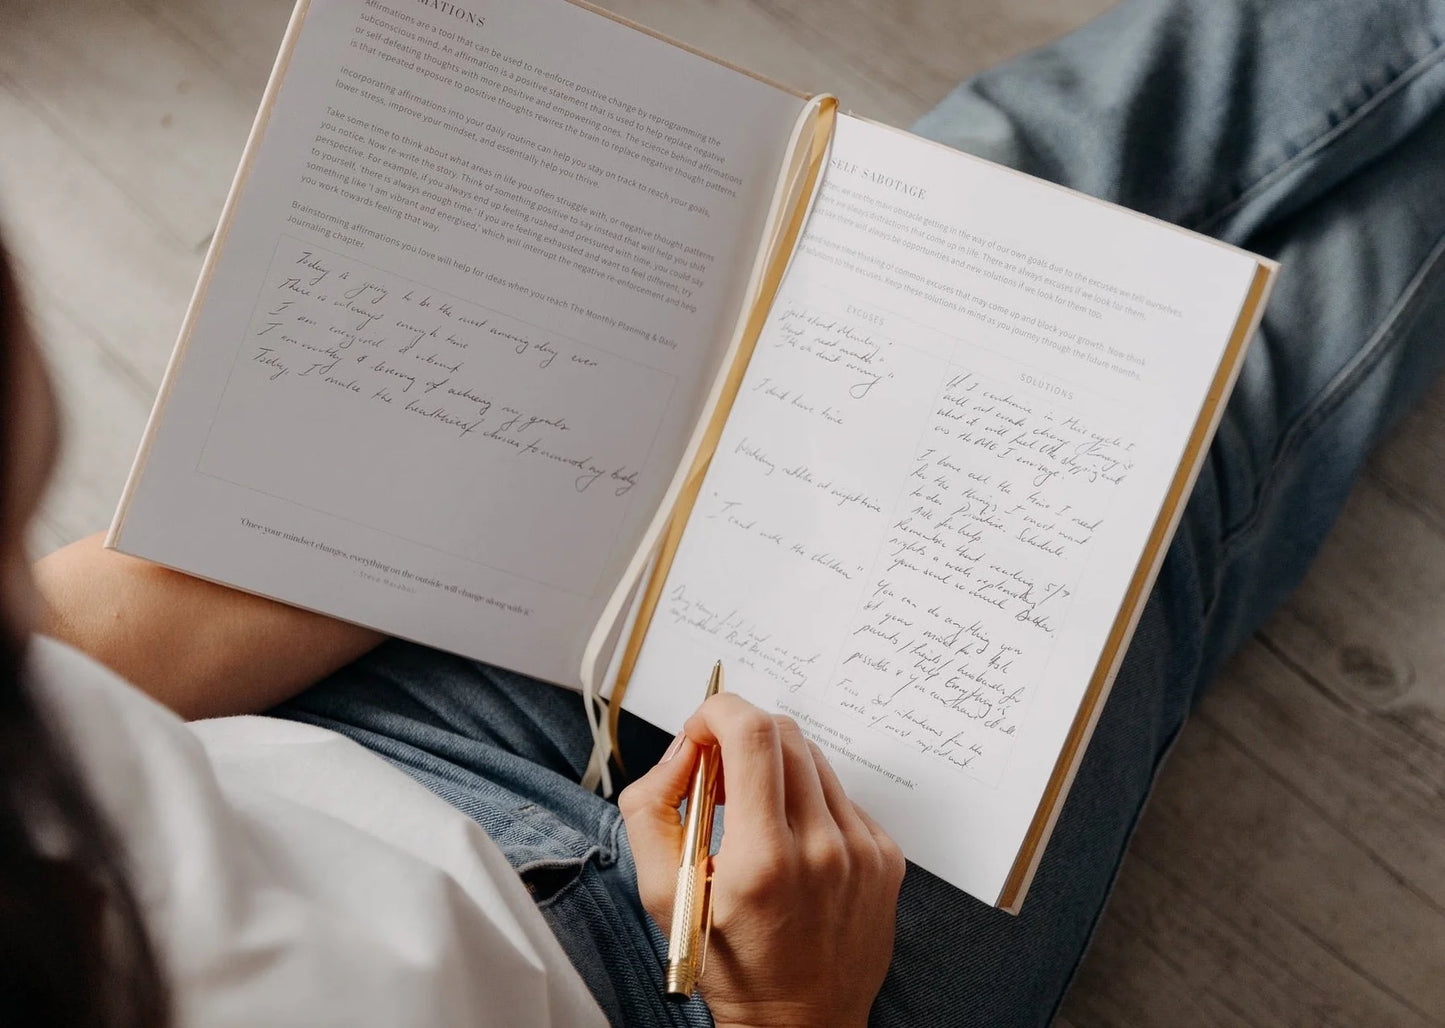 MATIONS
Affirmations are a tool that can be used to re-enforce positive change by reprogramming the
subconscious mind. An affirmation is a positive statement that is used to help replace negative
or self-defeating thoughts with more positive and empowering ones. The science behind affirmations
is that repeated exposure to positive thoughts rewires the brain to replace negative thought patterns,
lower stress, improve your mindset, and essentially help you thrive.
Incorporating affirmations into your daily routine can help you stay on track to reach your goals,
Take some time to think about what areas in life you often struggle with, or negative thought patterns
you notice. Now re-write the story. Think of something positive to say instead that will help you shift
perspective. For example, if you always end up feeling rushed and pressured with time, you could say
to yourself, 'there is always enough time.' If you are feeling exhausted and want to feel different, try
something like 'I am vibrant and energised,' which will interrupt the negative re-enforcement and help
you work towards feeling that way.
Brainstorming affirmations you love will help for ideas when you reach The Monthly Planning & Daily
Journaling chapter.
Today is going to be the most amazing day ever
There is always enough time
I am energised & vibrant
I am worthy & deserving of achieving my goals
Today, I make the healthiest choices to nourish my body
'Once your mindset changes, everything on the outside will change along with it.'
- Steve Maraboli
SELF SABOTAGE
Often, we are the main obstacle getting in the way of our own goals due to the excuses we tell ourselves.
There are always distractions that come up in life. There are always excuses if we look for them,
just like there will always be opportunities and new solutions if we look for them too.
Spend some time thinking of common excuses that may come up and block your growth. Now think
of solutions to the excuses. Keep these solutions in mind as you journey through the future months.
EXCUSES
"Just start Monday,"
next month"
don't worry"
I don't have time
Watching at nighttime
"I can't with the children"
not
But because they
are
SOLUTIONS
If I continue in this cycle I
will not change.
what it will feel like stepping out
as the ME I envisage!
I have all the time I need
for the things I most want
to do. Prioritise. Schedule.
Ask for help
Remember that reading 5/7
nights a week replenishes
your soul so much better.
You can do anything you
set your mind to. Ask
parents/friends/husbands for
help. Everything is
possible & you can
Set intentions for the
week of most important.
'Get out of your own way
when working towards our goals.'